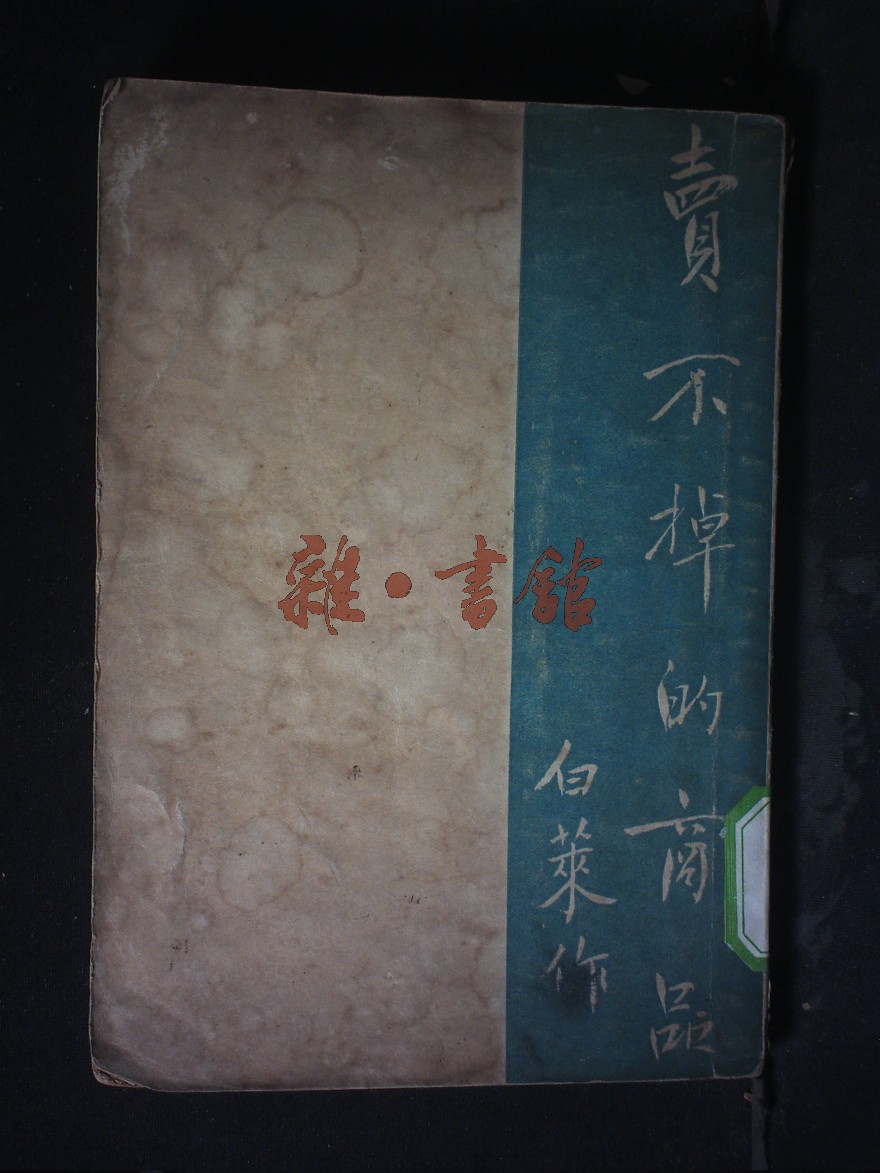 賣不掉的商品
白萊作
雜·書館